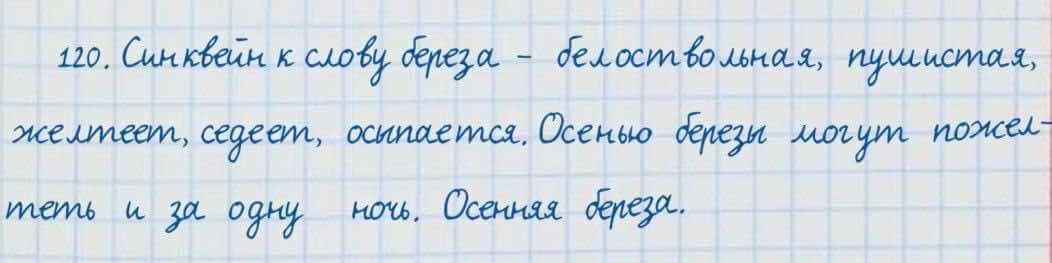 120. Синквейн к слову береза – белоствольная, пушистая,
желтеет, седеет, осыпается. Осенью березы могут пожел-
теть и за одну ночь. Осенняя береза.